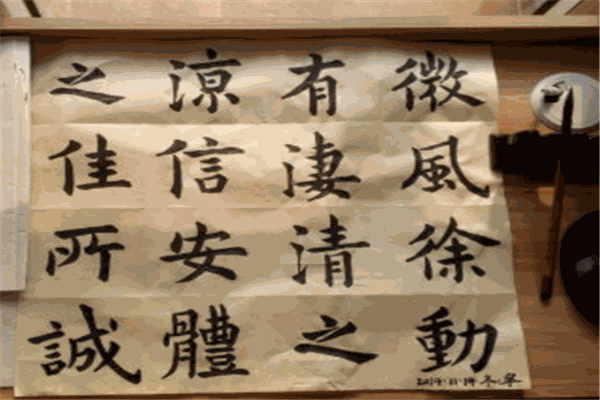 微風徐動
有淒清之
涼信安體
之佳所誠
2019.11.14